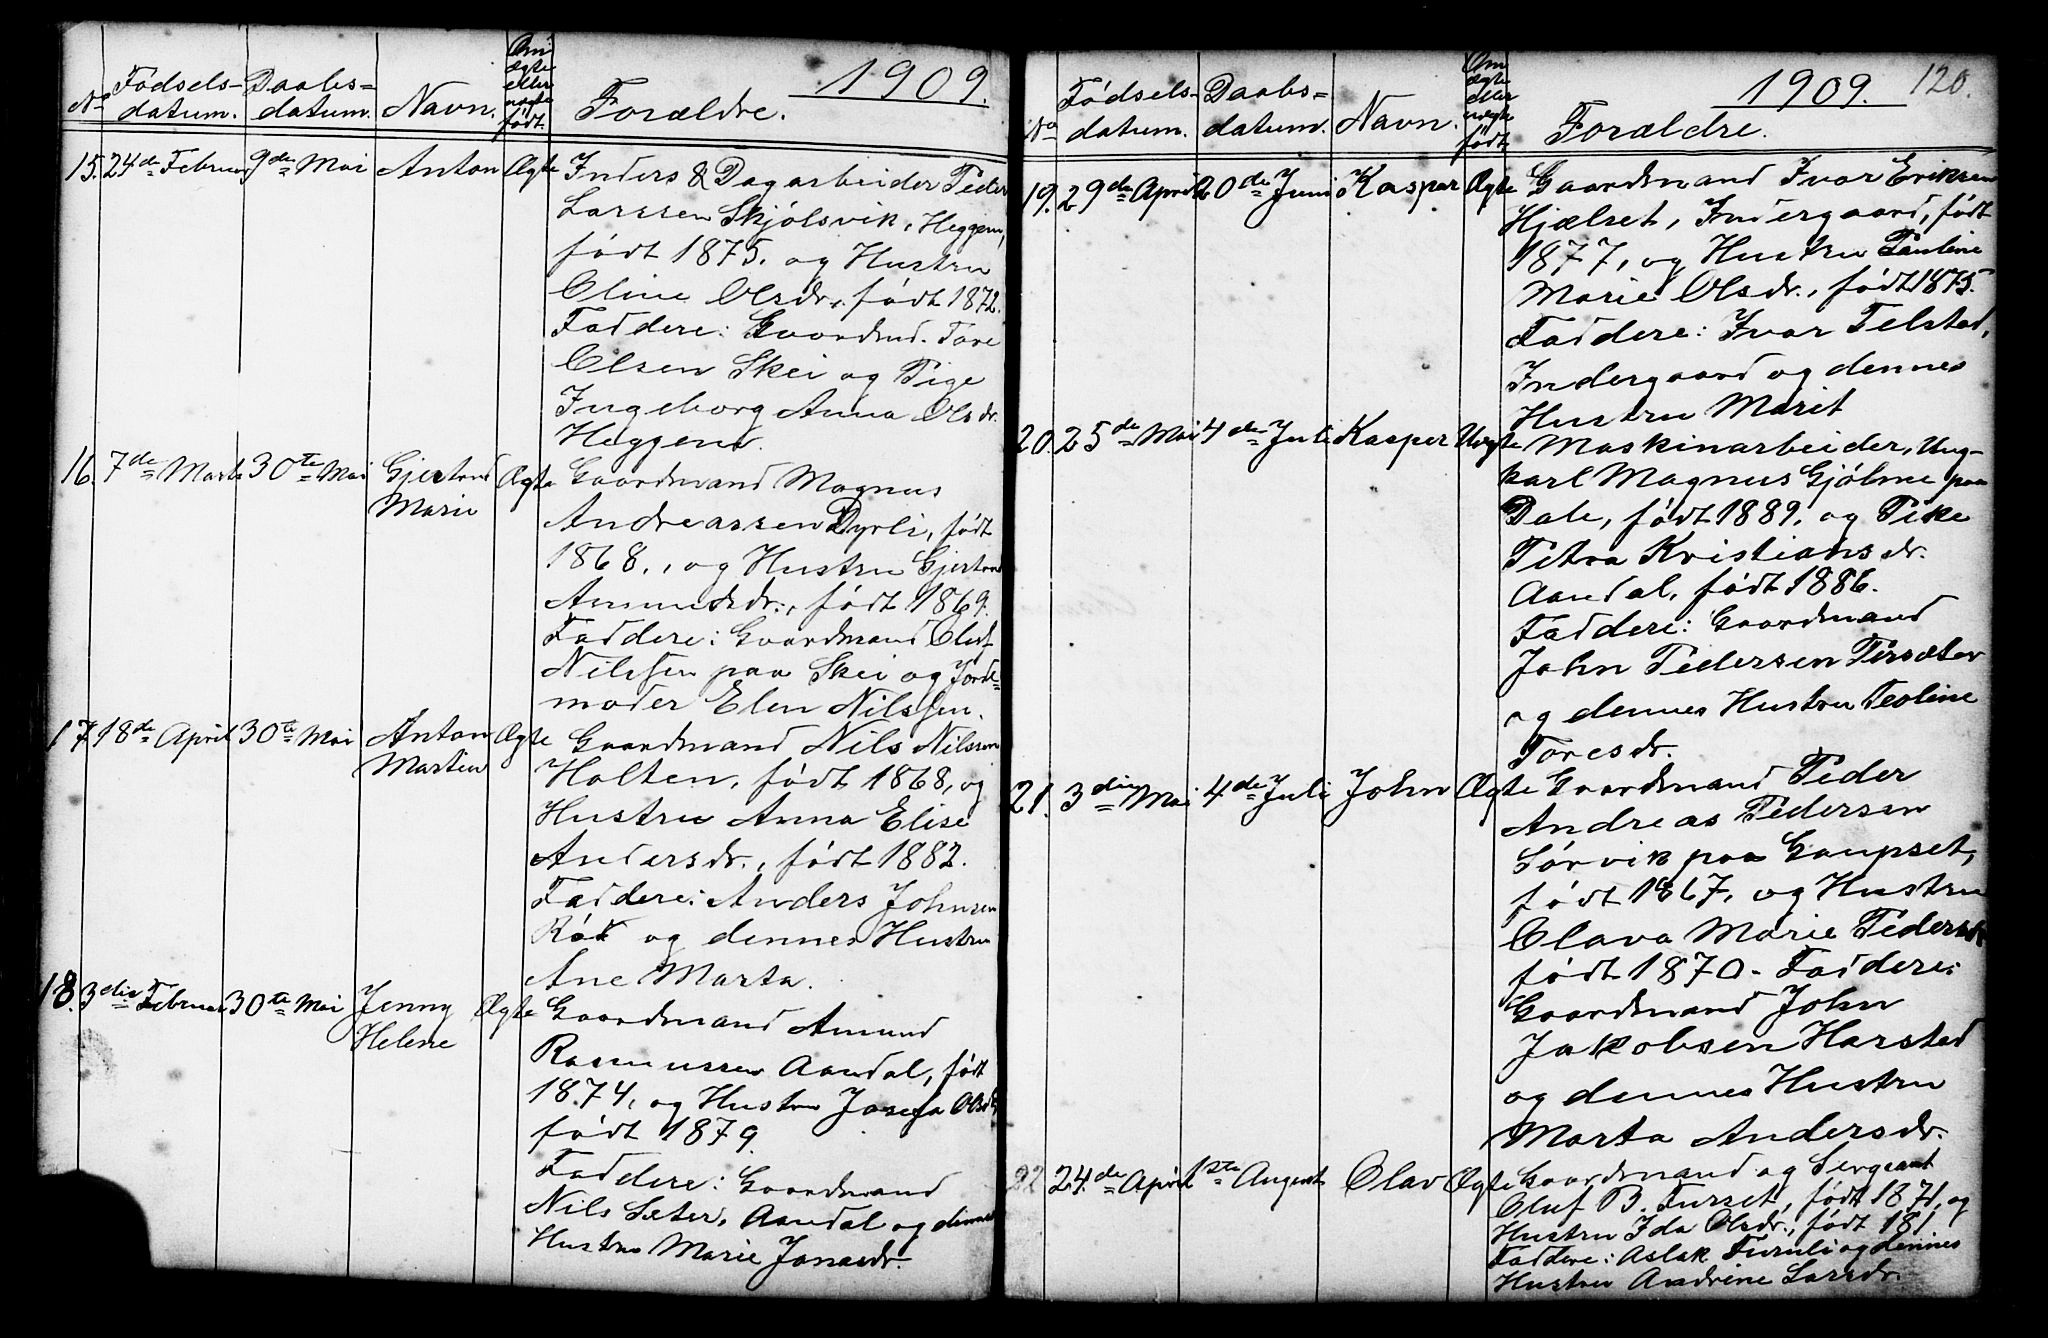 1909.
No Fødsels-datum. Daabs=datum. Navn. Om ægte eller uægte født. Forældre.
15. 24de Februar 9de Mai Anton Ægte Inders & Dagarbeider Peder
Larssen Skjølsvik, Heggem,
født 1875. og Hustru
Oline Olsdr., født 1872.
Faddere: Gaardmd. Tore
Olsen Skei og Pige
Ingeborg Anna Olsdr.
Heggem.
16. 7de Marts 30te Mai Gjertrud Marie Ægte Gaardmand Magnus
Andreassen Dyrli, født
1868., og Hustru Gjertrud
Amundsdr., født 1869.
Faddere: Gaardmand Oluf
Nilssen paa Skei og Jorde=
moder Elen Nilssen.
17. 18de April 30te Mai Anton Martin Ægte Gaardmand Nils Nilssen
Holten, født 1868, og
Hustru Anna Elise
Andersdr., født 1882.
Faddere: Anders Johnsen
Rød og dennes Hustru
Ane Marta.
18. 3die Februar 30te Mai Jenny Helene Ægte Gaardmand Amund
Rasmussen Aandal, født
1874, og Hustru Josefa Olsdr
født 1879.
Faddere: Gaardmand
Nils Sæter, Aandal og dennes
Hustru Marie Jonasdr.
1909. 120.
No Fødsels-datum. Daabs=datum. Navn. Om ægte eller uægte født. Forældre.
19. 29de April 20de Juni Kaspar Ægte Gaardmand Ivar Eriksen
Hjælset, Indergaard, født
1877, og Hustru Pauline
Marie Olsdr., født 1875.
Faddere: Ivar Felstad,
Indergaard og dennes
Hustru Marit
20. 25de Mai 4de Juli Kasper Uægte Maskinarbeider, Ung-
karl Magnus Gjølme paa
Dale, født 1889. og Pike
Petra Kristiansdr.
Aandal, født 1886.
Faddere: Gaardmand
John Pedersen Persæter
og dennes Hustru Teoline
Toresdr.
21. 3die Mai 4de Juli John Ægte Gaardmand Peder
Andreas Pedersen
Sørvik paa Gaupset,
født 1867, og Hustru
Olava Marie Pedersdr
født 1870. Faddere:
Gaardmand John
Jakobsen Harstad
og dennes Hustru
Marta Andersdr.
22 24.de April 1ste August Olav Ægte Gaardmand og Sergeant
Oluf B. Furset, født 1871, og
Hustru Ida Olsdr., født 181
Faddere: Aslak Furuli og dennes
Hustru Andrine Larsdr.